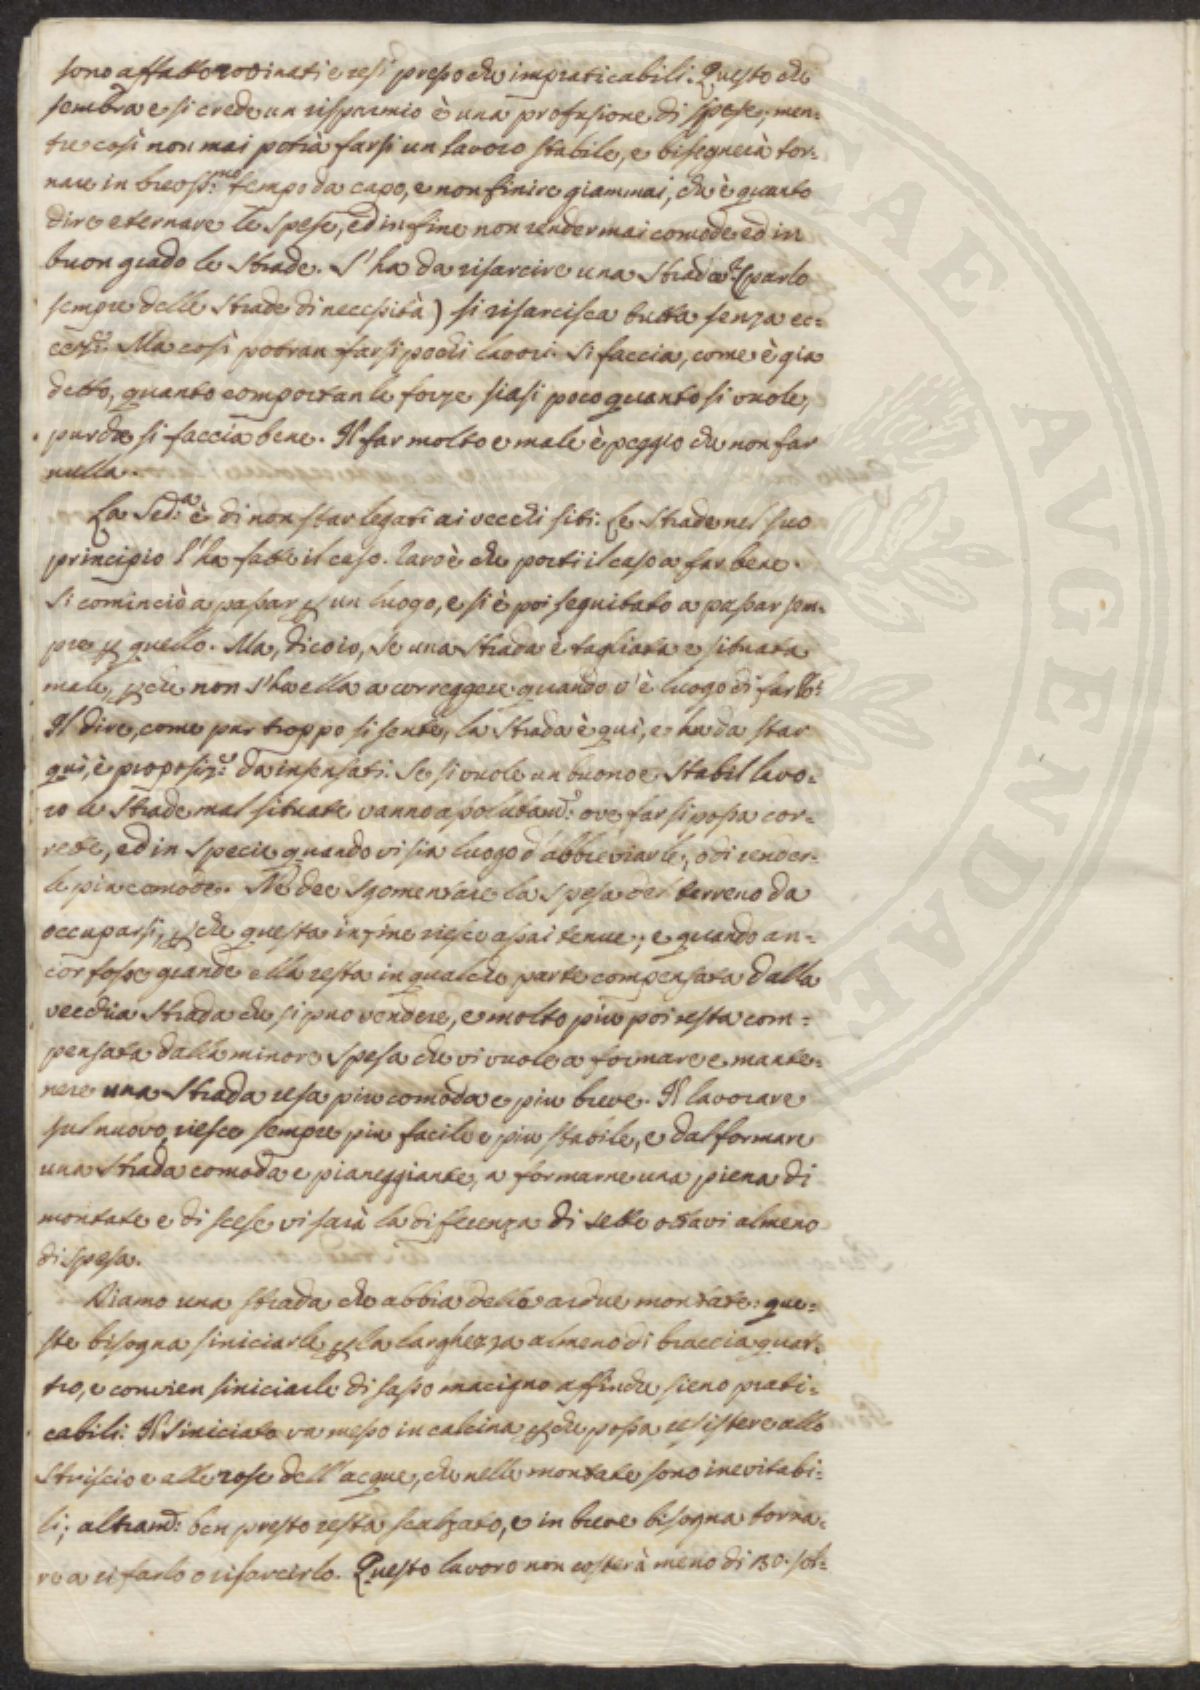 sono affatto rovinati e resi presso che impraticabili. Questo che
sembra e si crede un risparmio è una profusione di spese, men=
tre così non mai potrà farsi un lavoro stabile, e bisegnerà tor=
nare in breviss.mo tempo da capo, e non finire giammai, ch'è quanto
dire eternare le spese, ed in fine non render mai comode ed in
buon grado le strade. S'ha da risarcire una strada? (parlo
sempre delle strade di necessità) si risarcisca tutta senza ec=
cez.e Ma così potran farsi pochi lavori. Si faccia, come è già
detto, quanto comportan le forze siasi poco quanto si vuole,
purche si faccia bene. Il far molto e male è peggio che non far
nulla.
La Sed.a è di non star legati ai vecchi siti. Le strade nel suo
principio l'ha fatte il caso. Raro è che porti il caso a far bene.
Si cominciò a passar p un luogo, e si è poi seguitato a passar sem=
pre p quello. Ma, dico io, se una strada è tagliata e situata
male, p che non s'ha ella a correggere quando v'è luogo di farlo?
Il dire, come pur troppo si sente, la strada è qui, e ha da star
qui, è proposiz.e da insensati. Se si vuole un buono e stabil lavo=
ro le strade mal situate vanno assolutam.e ove far si possa cor=
rette, ed in specie quando vi sia luogo d'abbreviarle, o di render=
le più comode. Nè dee sgomentare la spesa del terreno da
occuparsi, p che questa in fine riesce assai tenue, e quando an=
cor fosse grande ella resta in qualche parte compensata dalla
vecchia strada che si può vendere, e molto più poi resta com=
pensata dalla minore spesa che vi vuole a formare e mante=
nere una strada resa più comoda e più breve. Il lavorare
sul nuovo riesce sempre più facile e più stabile, e dal formare
una strada comoda e pianeggiante, a formarne una piena di
montate e di scese vi sarà la differenza di sette ottavi almeno
di spesa.
Diamo una strada che abbia delle ardue montate: que=
ste bisogna siniciarle p la larghezza almeno di braccia quat=
tro, e convien siniciarle di sasso macigno affinche sieno prati=
cabili. Il siniciato va messo in calcina p che possa resistere allo
striscio e alle rose dell'acque, che nelle montate sono inevitabi=
li; altram.e ben presto resta scalzato, e in breve bisogna torna=
re a rifarlo o risarcirlo. Questo lavoro non costerà meno di 130. sol=